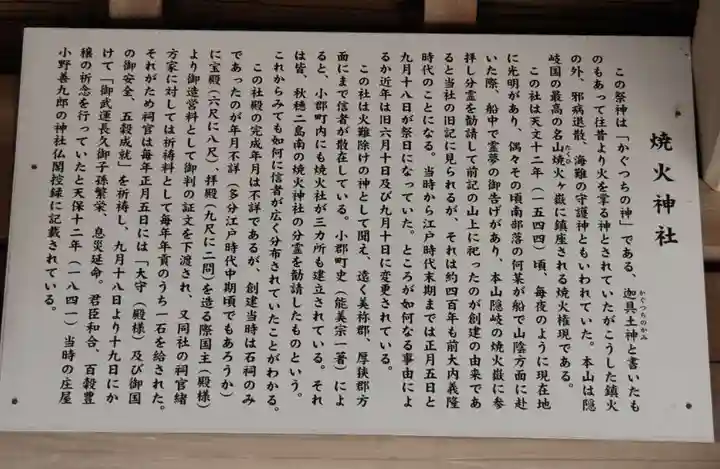 焼火神社
この祭神は「かぐつちの神」である、迦具土神と書いたも
かぐつちのかみ
のもあって往昔より火を掌る神とされていたがこうした鎮火
の外、邪病退散、海難の守護神ともいわれていた。本山は隠
岐国の最高の名山焼火ヶ嶽に鎮座される焼火権現である。
たくひ
この社は天文十二年(一五四四)頃、毎夜のように現在地
に光明があり、偶々その頃南部落の何某が船で山陰方面に赴
いた際、船中で霊夢の御告げがあり、本山隠岐の焼火嶽に参
拝し分霊を勧請して前記の山上に祀ったのが創建の由来であ
ると当社の旧記に見られるが、それは約四百年も前大内義隆
時代のことになる。当時から江戸時代末期までは正月五日と
九月十八日が祭日になっていた。ところが如何なる事由によ
るか近年は旧六月十日及び九月十日に変更されている。
この社は火難除けの神として聞え、遠く美祢郡、厚狭郡方
面にまで信者が散在している。小郡町史(能美宗一著)によ
ると、小郡町内にも焼火社が三カ所も建立されている。それ
は皆、秋穂二島南の焼火神社の分霊を勧請したものという。
これからみても如何に信者が広く分布されていたことがわかる。
この社殿の完成年月は不詳であるが、創建当時は石祠のみ
であったのが年月不詳(多分江戸時代中期頃でもあろうか)
に宝殿(六尺に八尺)、拝殿(九尺に二間)を造る際国主(殿様)
より御造営料として御判の証文を下渡され、又同社の祠官緒
方家に対しては祈祷料として毎年年貢のうち一石を給された。
それがため祠官は毎年正月五日には「大守(殿様)及び御国
の御安全、五穀成就」を祈祷し、九月十八日より十九日にか
けて「御武運長久御子孫繁栄、息災延命。君臣和合、百穀豊
穣の祈念を行っていたと天保十二年(一八四一)当時の庄屋
小野善九郎の神社仏閣控録に記載されている。